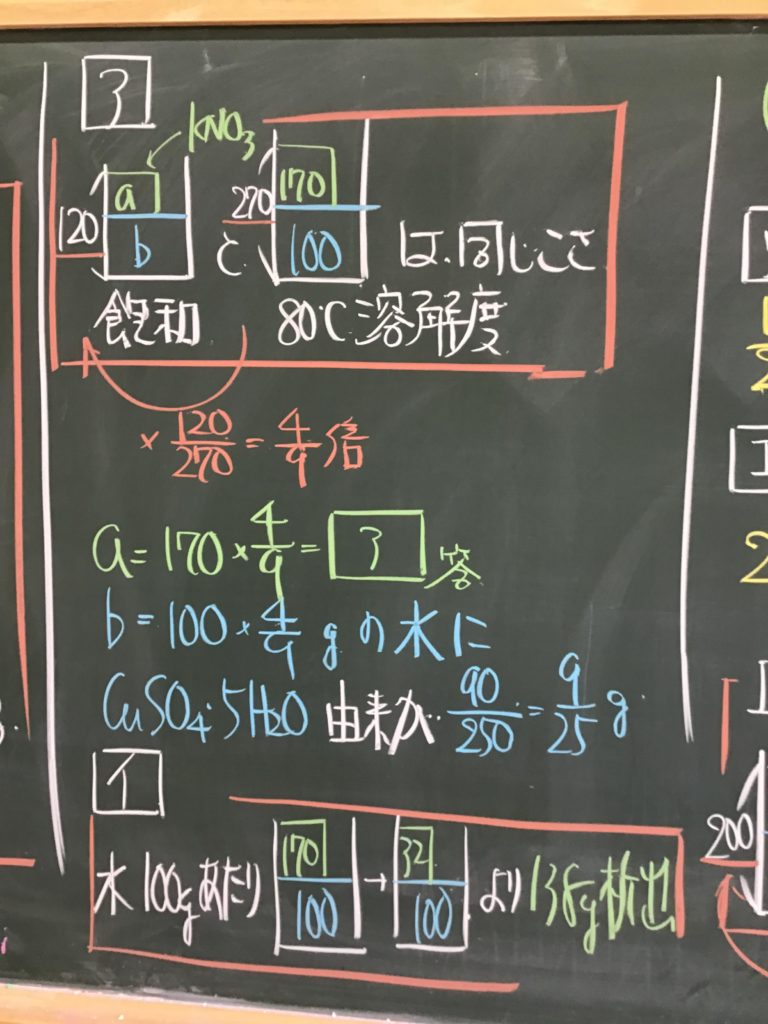 ア
KNO₃
120 a b と 270 170 100 は、同じこさ
飽和 80℃溶解度
× 120/270 = 4/9 倍
a = 170 × 4/9 = ア 答
b = 100 × 4/9 g の水に
CuSO₄・5H₂O 由来が 90/250 = 9/25 g
イ
水100gあたり 170 100 → 32 100 より 138g析出
200